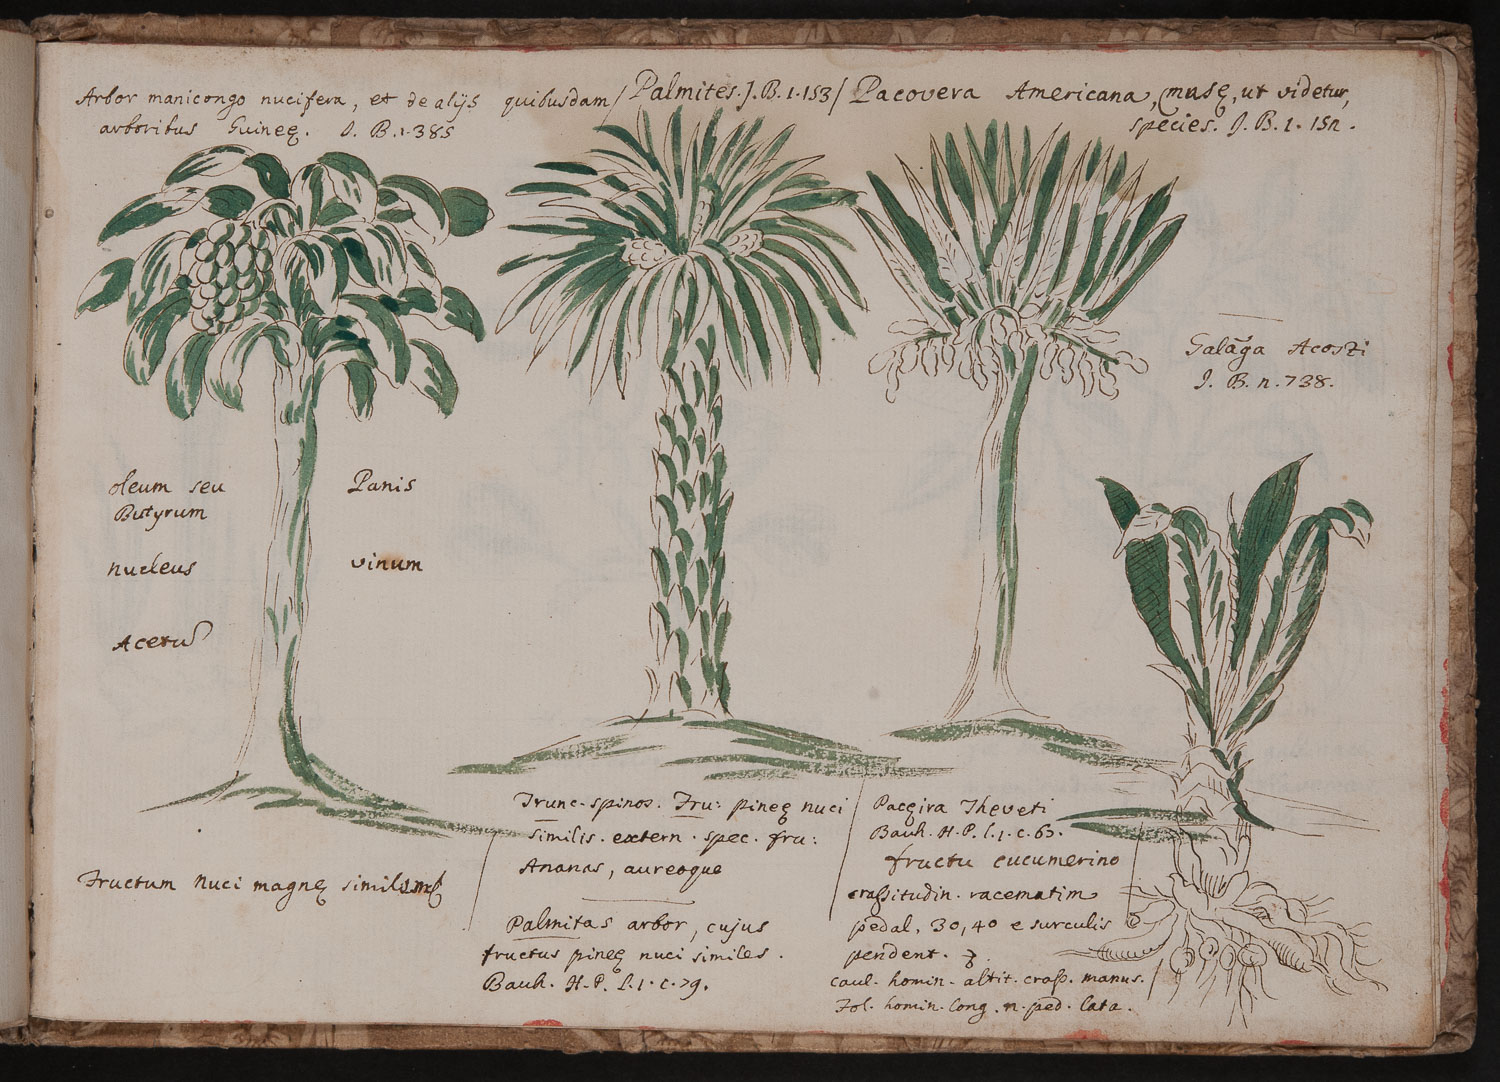 Arbor manicongo nucifera, et de alijs quibusdam /
arboribus Guineę. J. B. 1. 385
Palmites. J. B. 1. 153 /
Pacovera Americana, musę, ut videtur,
species. J. B. 1. 152.
Galāga Acosti
J. B. n. 738.
oleum seu
Butyrum
Panis
nucleus
vinum
Acetum
Fructum nuci magnę
Trunc. spinos. Fru: pineę nuci
similis. extern. spec. fru:
Ananas, aureoque
Palmitas arbor, cujus
fructus pineę nuci similes.
Bauh. H. P. l. 1. c. 79.
Pacęira Theveti
Bauh. H. P. l. 1. c. 63.
fructu cucumerino
crassitudin. racematim
pedal. 30, 40 e surculis
pendent.
caul. homin. altit. crass. manus.
Fol. homin. long. n. ped. lata.